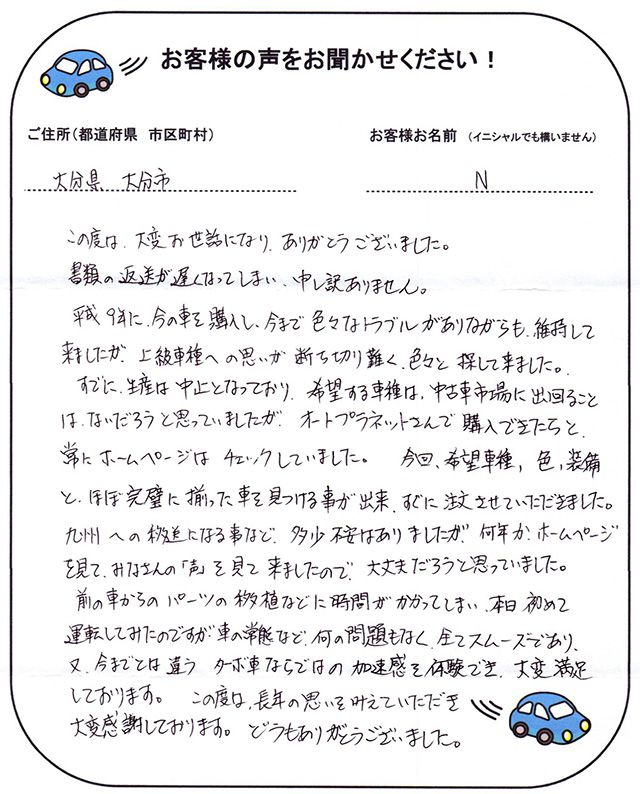 お客様の声をお聞かせください！
ご住所（都道府県　市区町村）
お客様お名前　（イニシャルでも構いません）
大分県　大分市
N
この度は、大変お世話になり、ありがとうございました。
書類の返送が遅くなってしまい、申し訳ありません。
平成9年に、今の車を購入し、今まで色々なトラブルがありながらも、維持して
来ましたが、上級車種への思いが断ち切り難く、色々と探して来ました。
すでに、生産は中止となっており、希望する車種は、中古車市場に出回ること
は、ないだろうと思っていましたが、オートプラネットさんで購入できたらと、
常にホームページはチェックしていました。　今回、希望車種、色、装備
と、ほぼ完璧に揃った車を見つける事が出来、すぐに注文させていただきました。
九州への移送になる事など、多少不安はありましたが、何年かホームページ
を見て、みなさんの「声」を見て来ましたので、大丈夫だろうと思っていました。
前の車からのパーツの移植などに時間がかかってしまい、本日初めて
運転してみたのですが、車の常態など、何の問題もなく、全てスムーズであり、
又、今までとは違うターボ車ならではの加速感を体験でき、大変満足
しております。　この度は、長年の思いを叶えていただき
大変感謝しております。どうもありがとうございました。